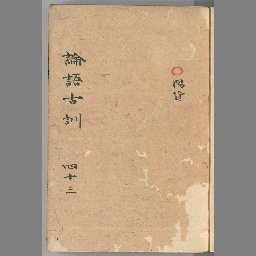 論語古訓
四十三
○陽貨